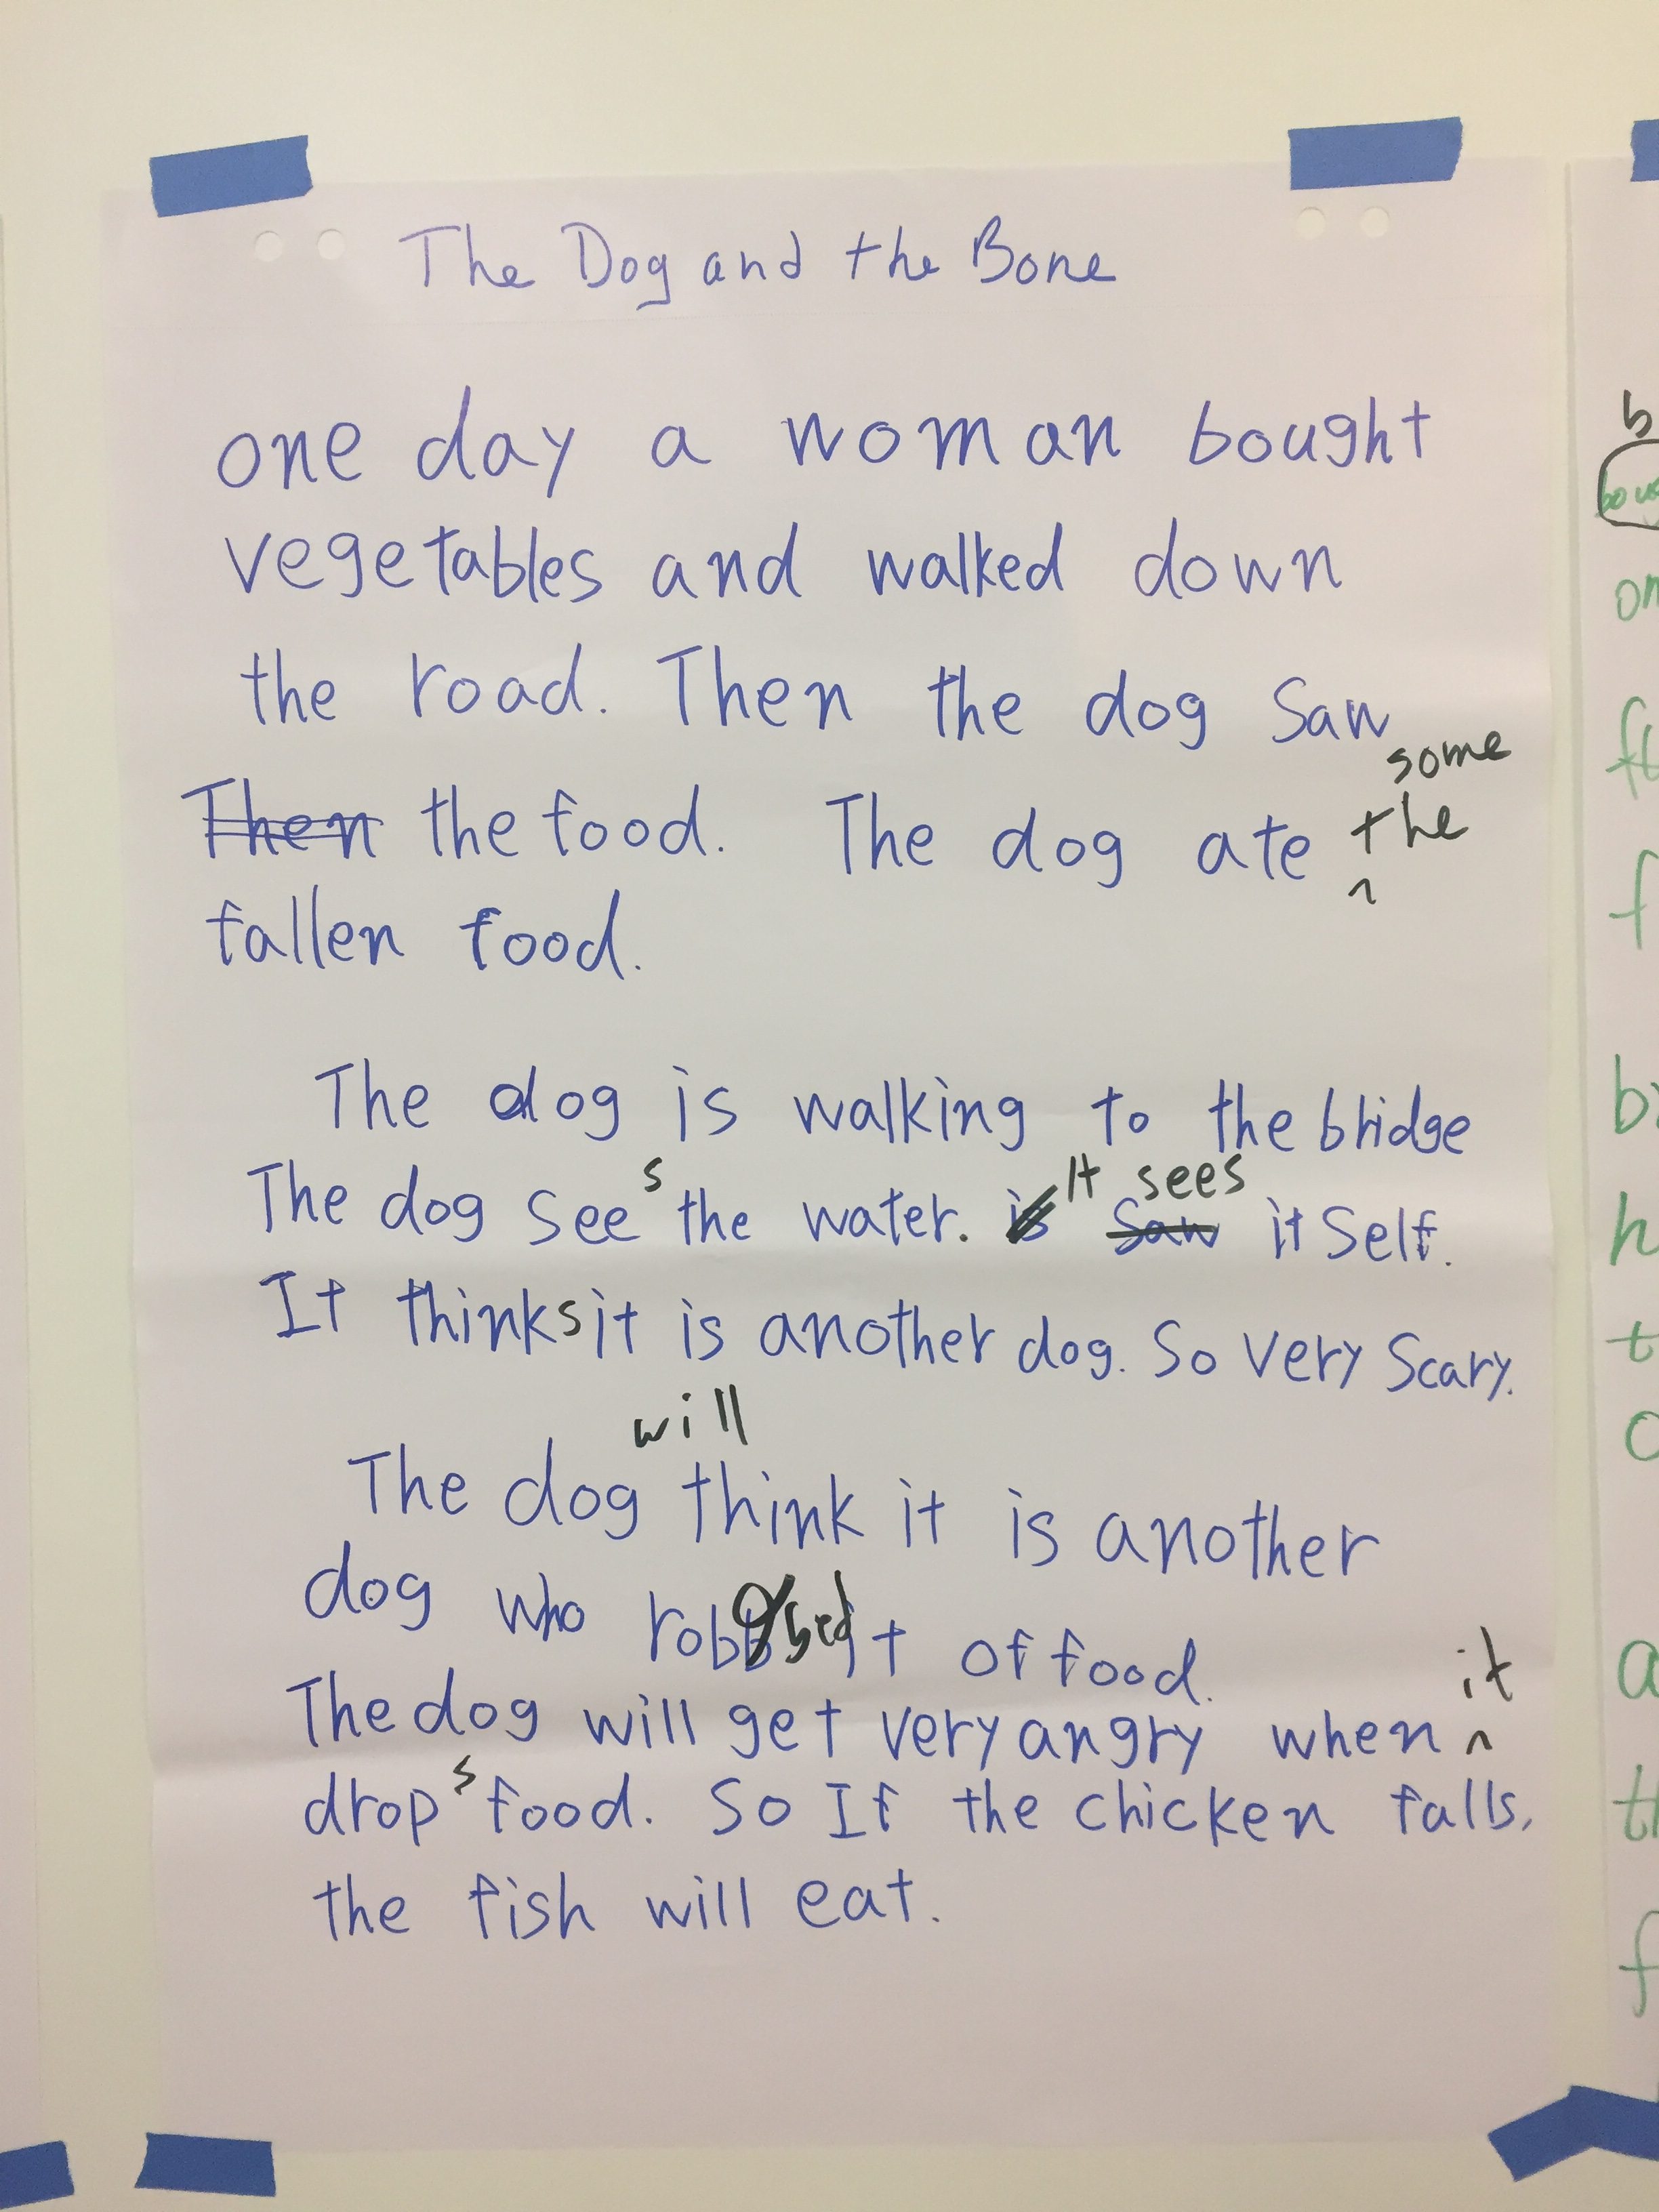 The Dog and the Bone
one day a woman bought
vegetables and walked down
the road. Then the dog saw
some
Then the food. The dog ate the
fallen food.
The dog is walking to the bridge
s It sees
The dog see the water. is saw itself.
It thinks it is another dog. So very scary.
will
The dog think it is another
dog who robbed it of food.
it
The dog will get very angry when ^
s
drop food. So If the chicken falls,
the fish will eat.
b
on
f
h
t
a
f